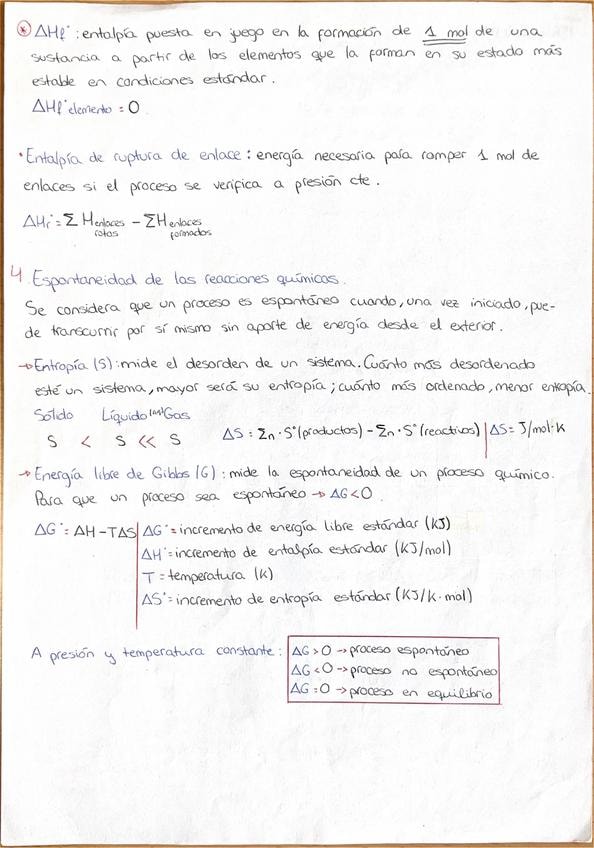 * ΔHf°: entalpía puesta en juego en la formación de 1 mol de una
sustancia a partir de los elementos que la forman en su estado más
estable en condiciones estándar.
ΔHf° elemento = 0
·Entalpía de ruptura de enlace: energía necesaria para romper 1 mol de
enlaces si el proceso se verifica a presión cte.
ΔHr° = Σ H enlaces rotos − Σ H enlaces formados
4. Espontaneidad de las reacciones químicas.
Se considera que un proceso es espontáneo cuando, una vez iniciado, pue-
de transcurrir por sí mismo sin aporte de energía desde el exterior.
→Entropía (S): mide el desorden de un sistema. Cuánto más desordenado
esté un sistema, mayor será su entropía; cuánto más ordenado, menor entropía.
Sólido Líquido Gas
S < S << S ΔS = Σn · S°(productos) − Σn · S°(reactivos) | ΔS = J/mol·K
→Energía libre de Gibbs (G): mide la espontaneidad de un proceso químico.
Para que un proceso sea espontáneo → ΔG<0.
ΔG° = ΔH − TΔS | ΔG° = incremento de energía libre estándar (KJ)
ΔH° = incremento de entalpía estándar (KJ/mol)
T = temperatura (K)
ΔS° = incremento de entropía estándar (KJ/K·mol)
A presión y temperatura constante: ΔG > 0 → proceso espontáneo
ΔG < 0 → proceso no espontáneo
ΔG = 0 → proceso en equilibrio